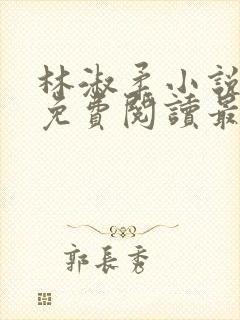 林淑柔小說
免費閱讀最
郭長秀